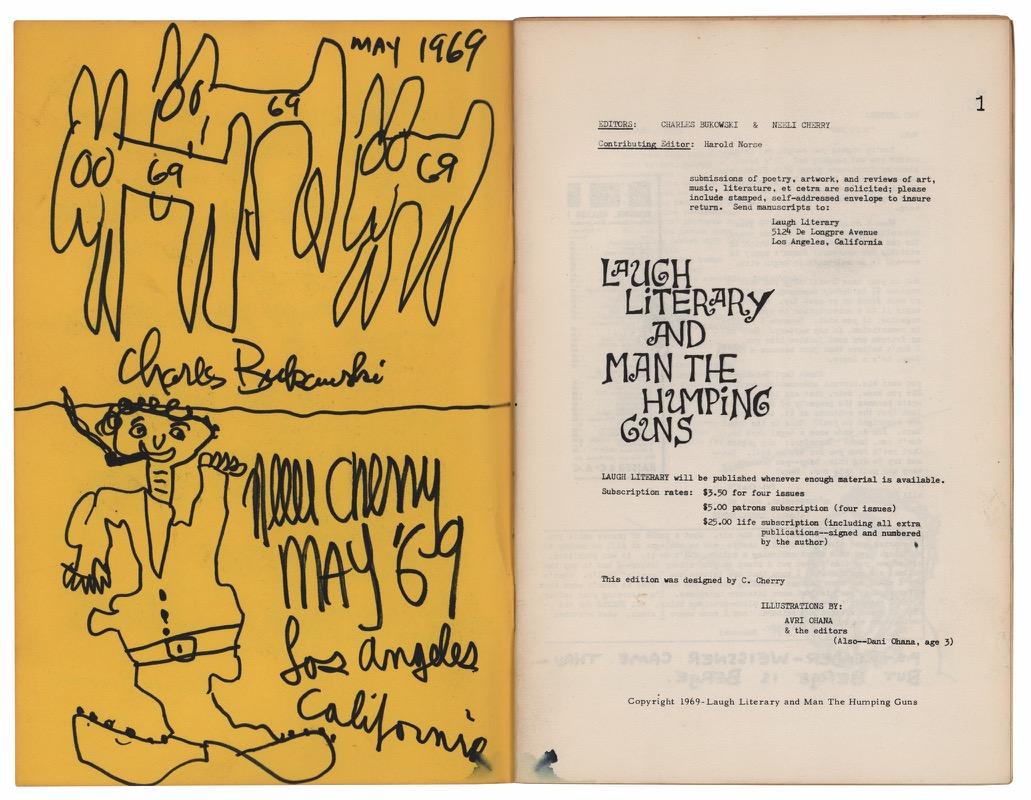 MAY 1969
69
69
69
Charles Bukowski
Neeli Cherry
MAY '69
Los Angeles
California
1
EDITORS: CHARLES BUKOWSKI & NEELI CHERRY
Contributing Editor: Harold Norse
submissions of poetry, artwork, and reviews of art,
music, literature, et cetra are solicited; please
include stamped, self-addressed envelope to insure
return. Send manuscripts to:
Laugh Literary
5124 De Longpre Avenue
Los Angeles, California
LAUGH
LiTERARY
AND
MAN THE
HUMPiNG
GUNS
LAUGH LITERARY will be published whenever enough material is available.
Subscription rates: $3.50 for four issues
$5.00 patrons subscription (four issues)
$25.00 life subscription (including all extra
publications--signed and numbered
by the author)
This edition was designed by C. Cherry
ILLUSTRATIONS BY:
AVRI OHANA
& the editors
(Also--Dani Ohana, age 3)
Copyright 1969-Laugh Literary and Man The Humping Guns